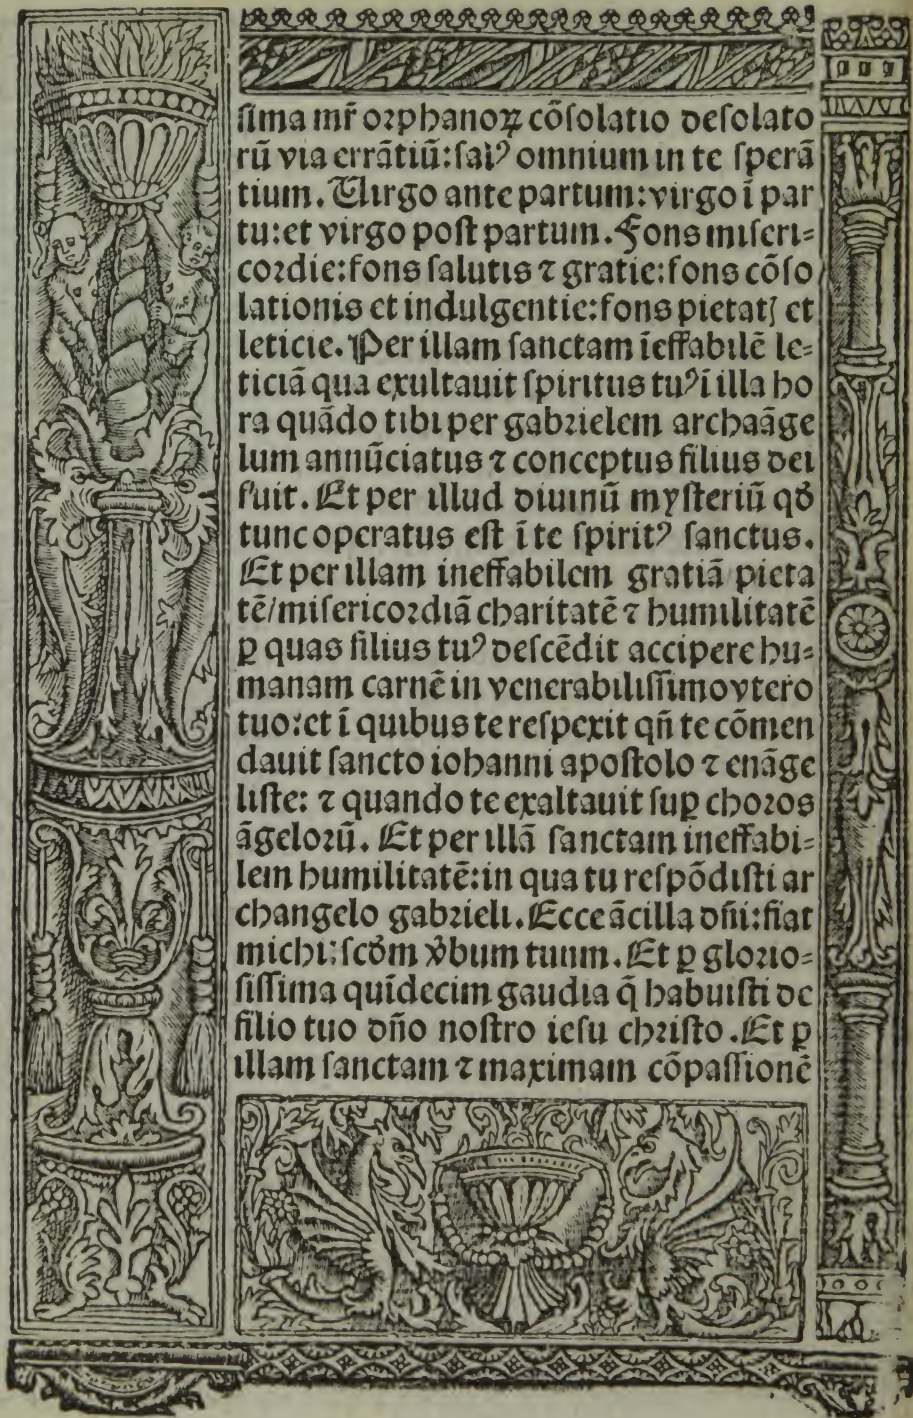 ſima mr̄ orphanoꝝ cōſolatio deſolato
rū via errātiū:ſalꝰ omnium in te ſperā
tium. Virgo ante partum:virgo ī par
tu:et virgo poſt partum. Fons miſeri⸗
cordie:fons ſalutis ⁊ gratie:fons cōſo
lationis et indulgentie:fons pietatꝭ et
leticie. Per illam ſanctam īeffabilē le⸗
ticiā qua exultauit ſpiritus tuꝰ ī illa ho
ra quādo tibi per gabrielem archaāge
lum annūciatus ⁊ conceptus filius dei
fuit. Et per illud diuinū myſteriū qđ
tunc operatus eſt ī te ſpiritꝰ ſanctus.
Et per illam ineffabilem gratiā pieta
tē/miſericordiā charitatē ⁊ humilitatē
ꝑ quas filius tuꝰ deſcēdit accipere hu⸗
manam carnē in venerabiliſſimo vtero
tuo:et ī quibus te reſpexit qn̄ te cōmen
dauit ſancto iohanni apoſtolo ⁊ enāge
liſte: ⁊ quando te exaltauit ſuꝑ choros
āgelorū. Et per illā ſanctam ineffabi⸗
lem humilitatē:in qua tu reſpōdiſti ar
changelo gabrieli. Ecce ācilla dn̄i:fiat
michi:ſcđm v̓bum tuum. Et ꝑ glorio⸗
ſiſſima quīdecim gaudia q̄ habuiſti de
filio tuo dn̄o noſtro ieſu chriſto. Et ꝑ
illam ſanctam ⁊ maximam cōpaſſionē